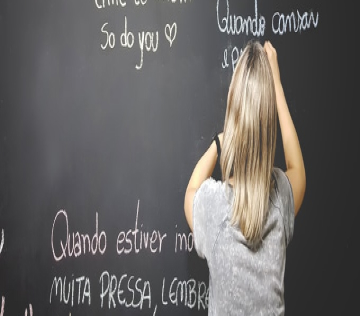 So do you ♡
Quando cansar
e p
Quando estiver
MUITA PRESSA, LEMBRE